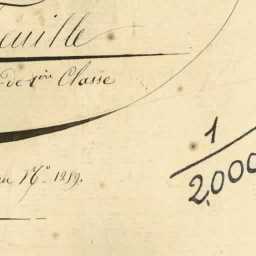 euille
de 1ère Classe
au N° 1259.
1/2,000